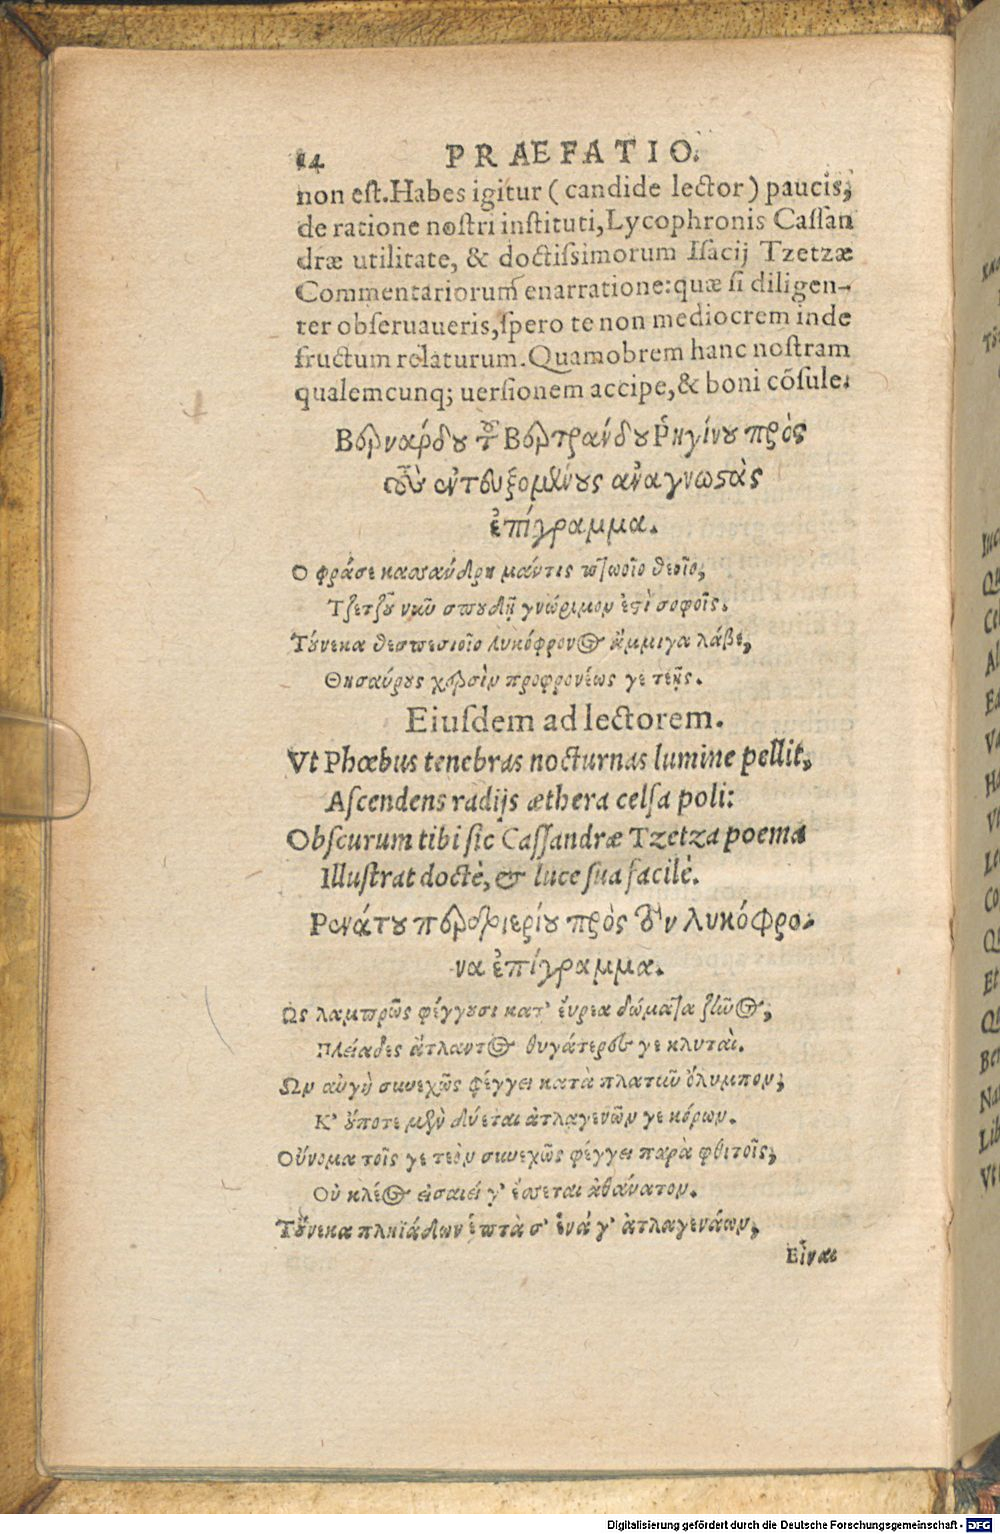 14 PRAEFATIO.
non est.Habes igitur (candide lector) paucis,
de ratione nostri instituti,Lycophronis Cassan
dræ utilitate, & doctissimorum Isacij Tzetzæ
Commentariorum enarratione:quæ si diligen-
ter obseruaueris,spero te non mediocrem inde
fructum relaturum.Quamobrem hanc nostram
qualemcunq; uersionem accipe,& boni cõsule.
Βερνάρδου τοῦ Βερτράνδου Ῥηγίνου πρὸς
τοὺς ἐντευξομένους ἀναγνωστὰς
ἐπίγραμμα.
Ὁ φράσε κασσάνδρη μάντις τῳοῖο θεοῖο,
Τζέτζου νῦν σπουδῇ γνώριμον ἐστὶ σοφοῖς.
Τούνεκα θεσπεσίοιο λυκόφρονος ἄμμιγα λάβε,
Θησαύρους χερσὶν προφρονέως γε τεῇς.
Eiusdem ad lectorem.
Vt Phœbus tenebras nocturnas lumine pellit,
Ascendens radijs æthera celsa poli:
Obscurum tibi sic Cassandræ Tzetza poema
Illustrat doctè, & luce sua facilè.
Ρενάτου περδριερίου πρὸς τὸν λυκόφρο-
να ἐπίγραμμα.
Ὡς λαμπρῶς φέγγουσι κατ' εὔρεα δώματα ζωῶς,
Πλείαδες ἄτλαντος θυγάτερες γε κλυταὶ.
Ὧν αὐγὴ συνεχῶς φέγγει κατὰ πλατῶν ὄλυμπον,
Κ' οὔποτε μὲν δύεται ἀτλαγενῶν γε κόρων.
Οὔνομα τοῖς γε τεὸν συνεχῶς φέγγει παρὰ φθιτοῖς,
Οὐ κλέος εἰσαιεί γ' ἔσσεται ἀθάνατον.
Τοὔνεκα πληϊάδων ἑπτὰ σ' ἑνά γ' ἀτλαγενάων,
Εἶναι
Digitalisierung gefördert durch die Deutsche Forschungsgemeinschaft - DFG